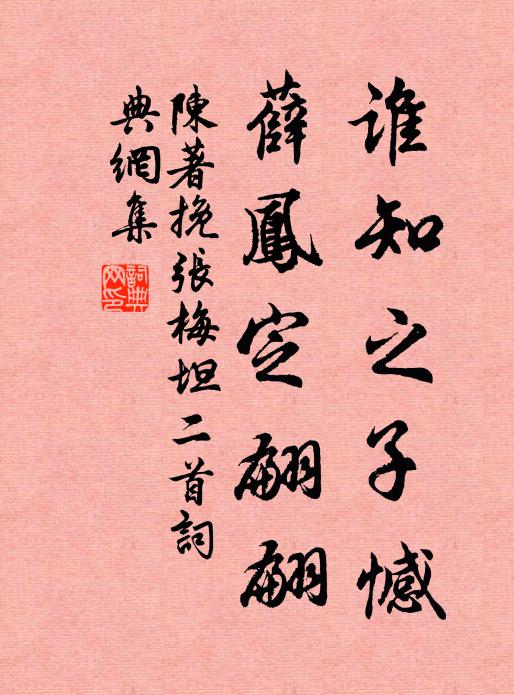 誰知之子憾
薛鳳定翩翩
陳著挽張梅坦二首詞
典網集
詞典
网印